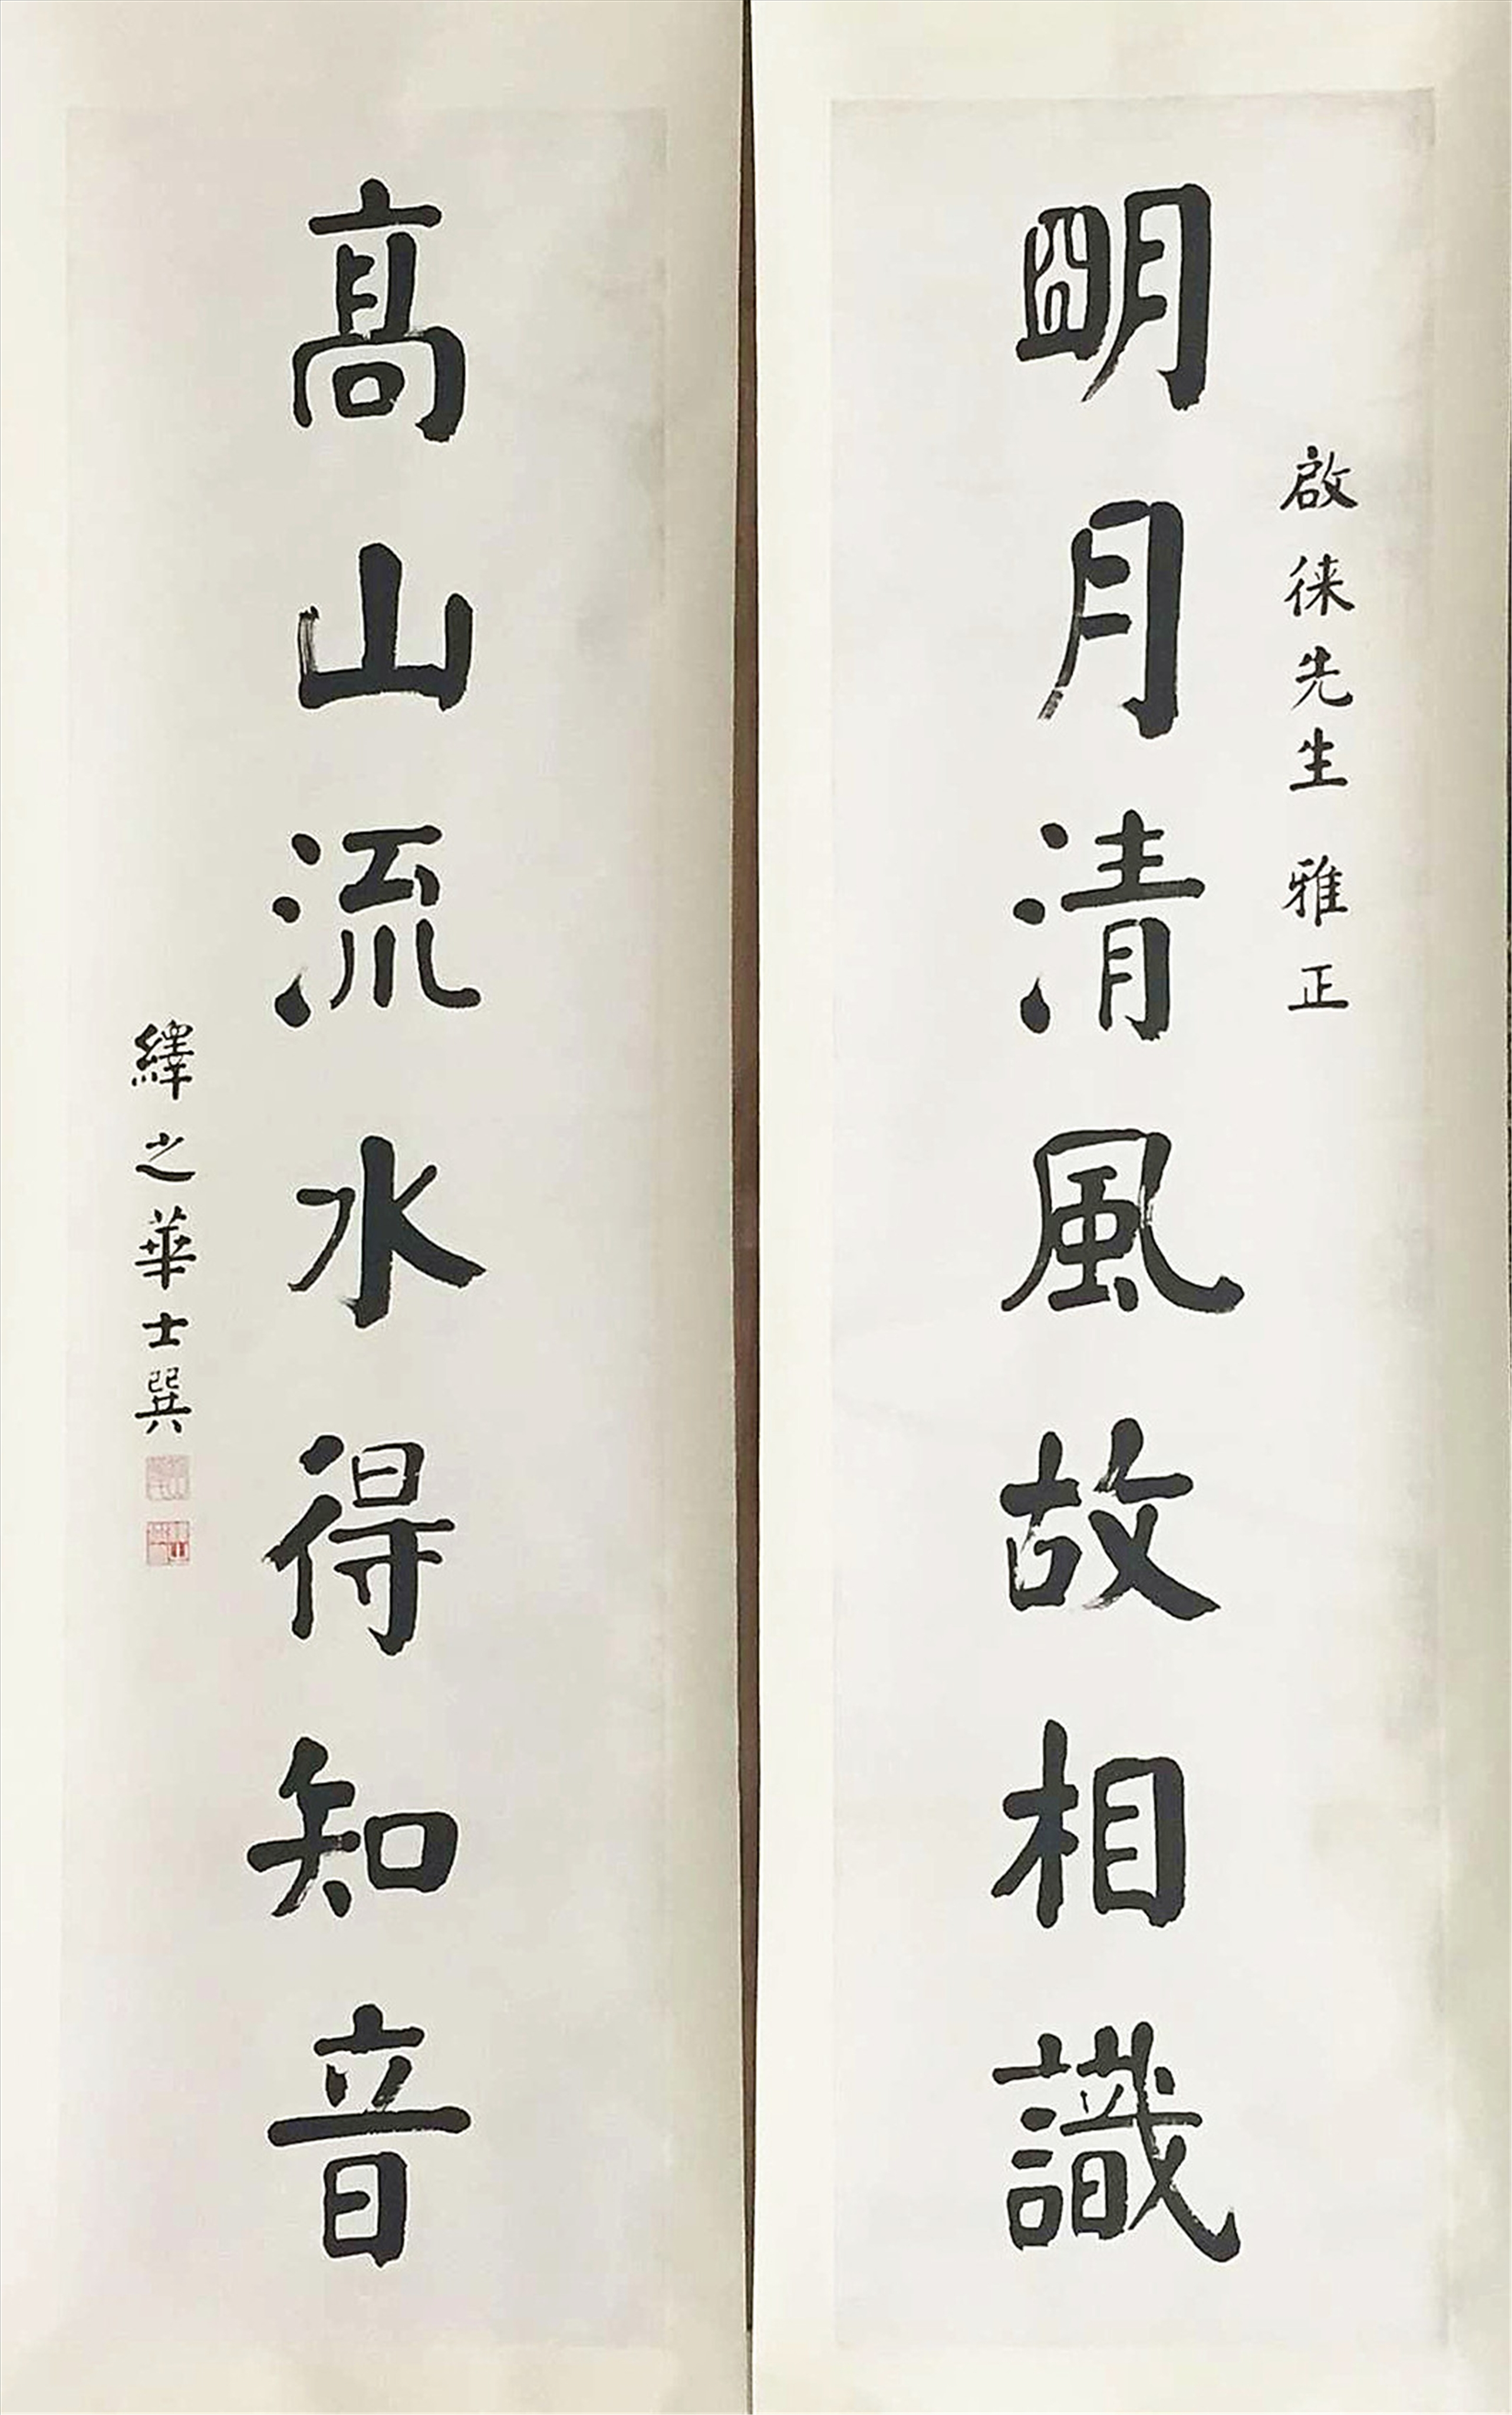 啟徠先生雅正
明月清風故相識
高山流水得知音
繹之華士巽